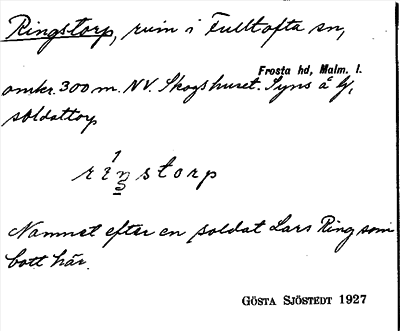 Ringstorp, ruin i Fulltofta sn,
Frosta hd, Malm. l.
omkr. 300 m. NV. Skogshuset. Syns å
soldattorp
ringstorp
Namnet efter en soldat Lars Ring som
bott här.
GÖSTA SJÖSTEDT 1927